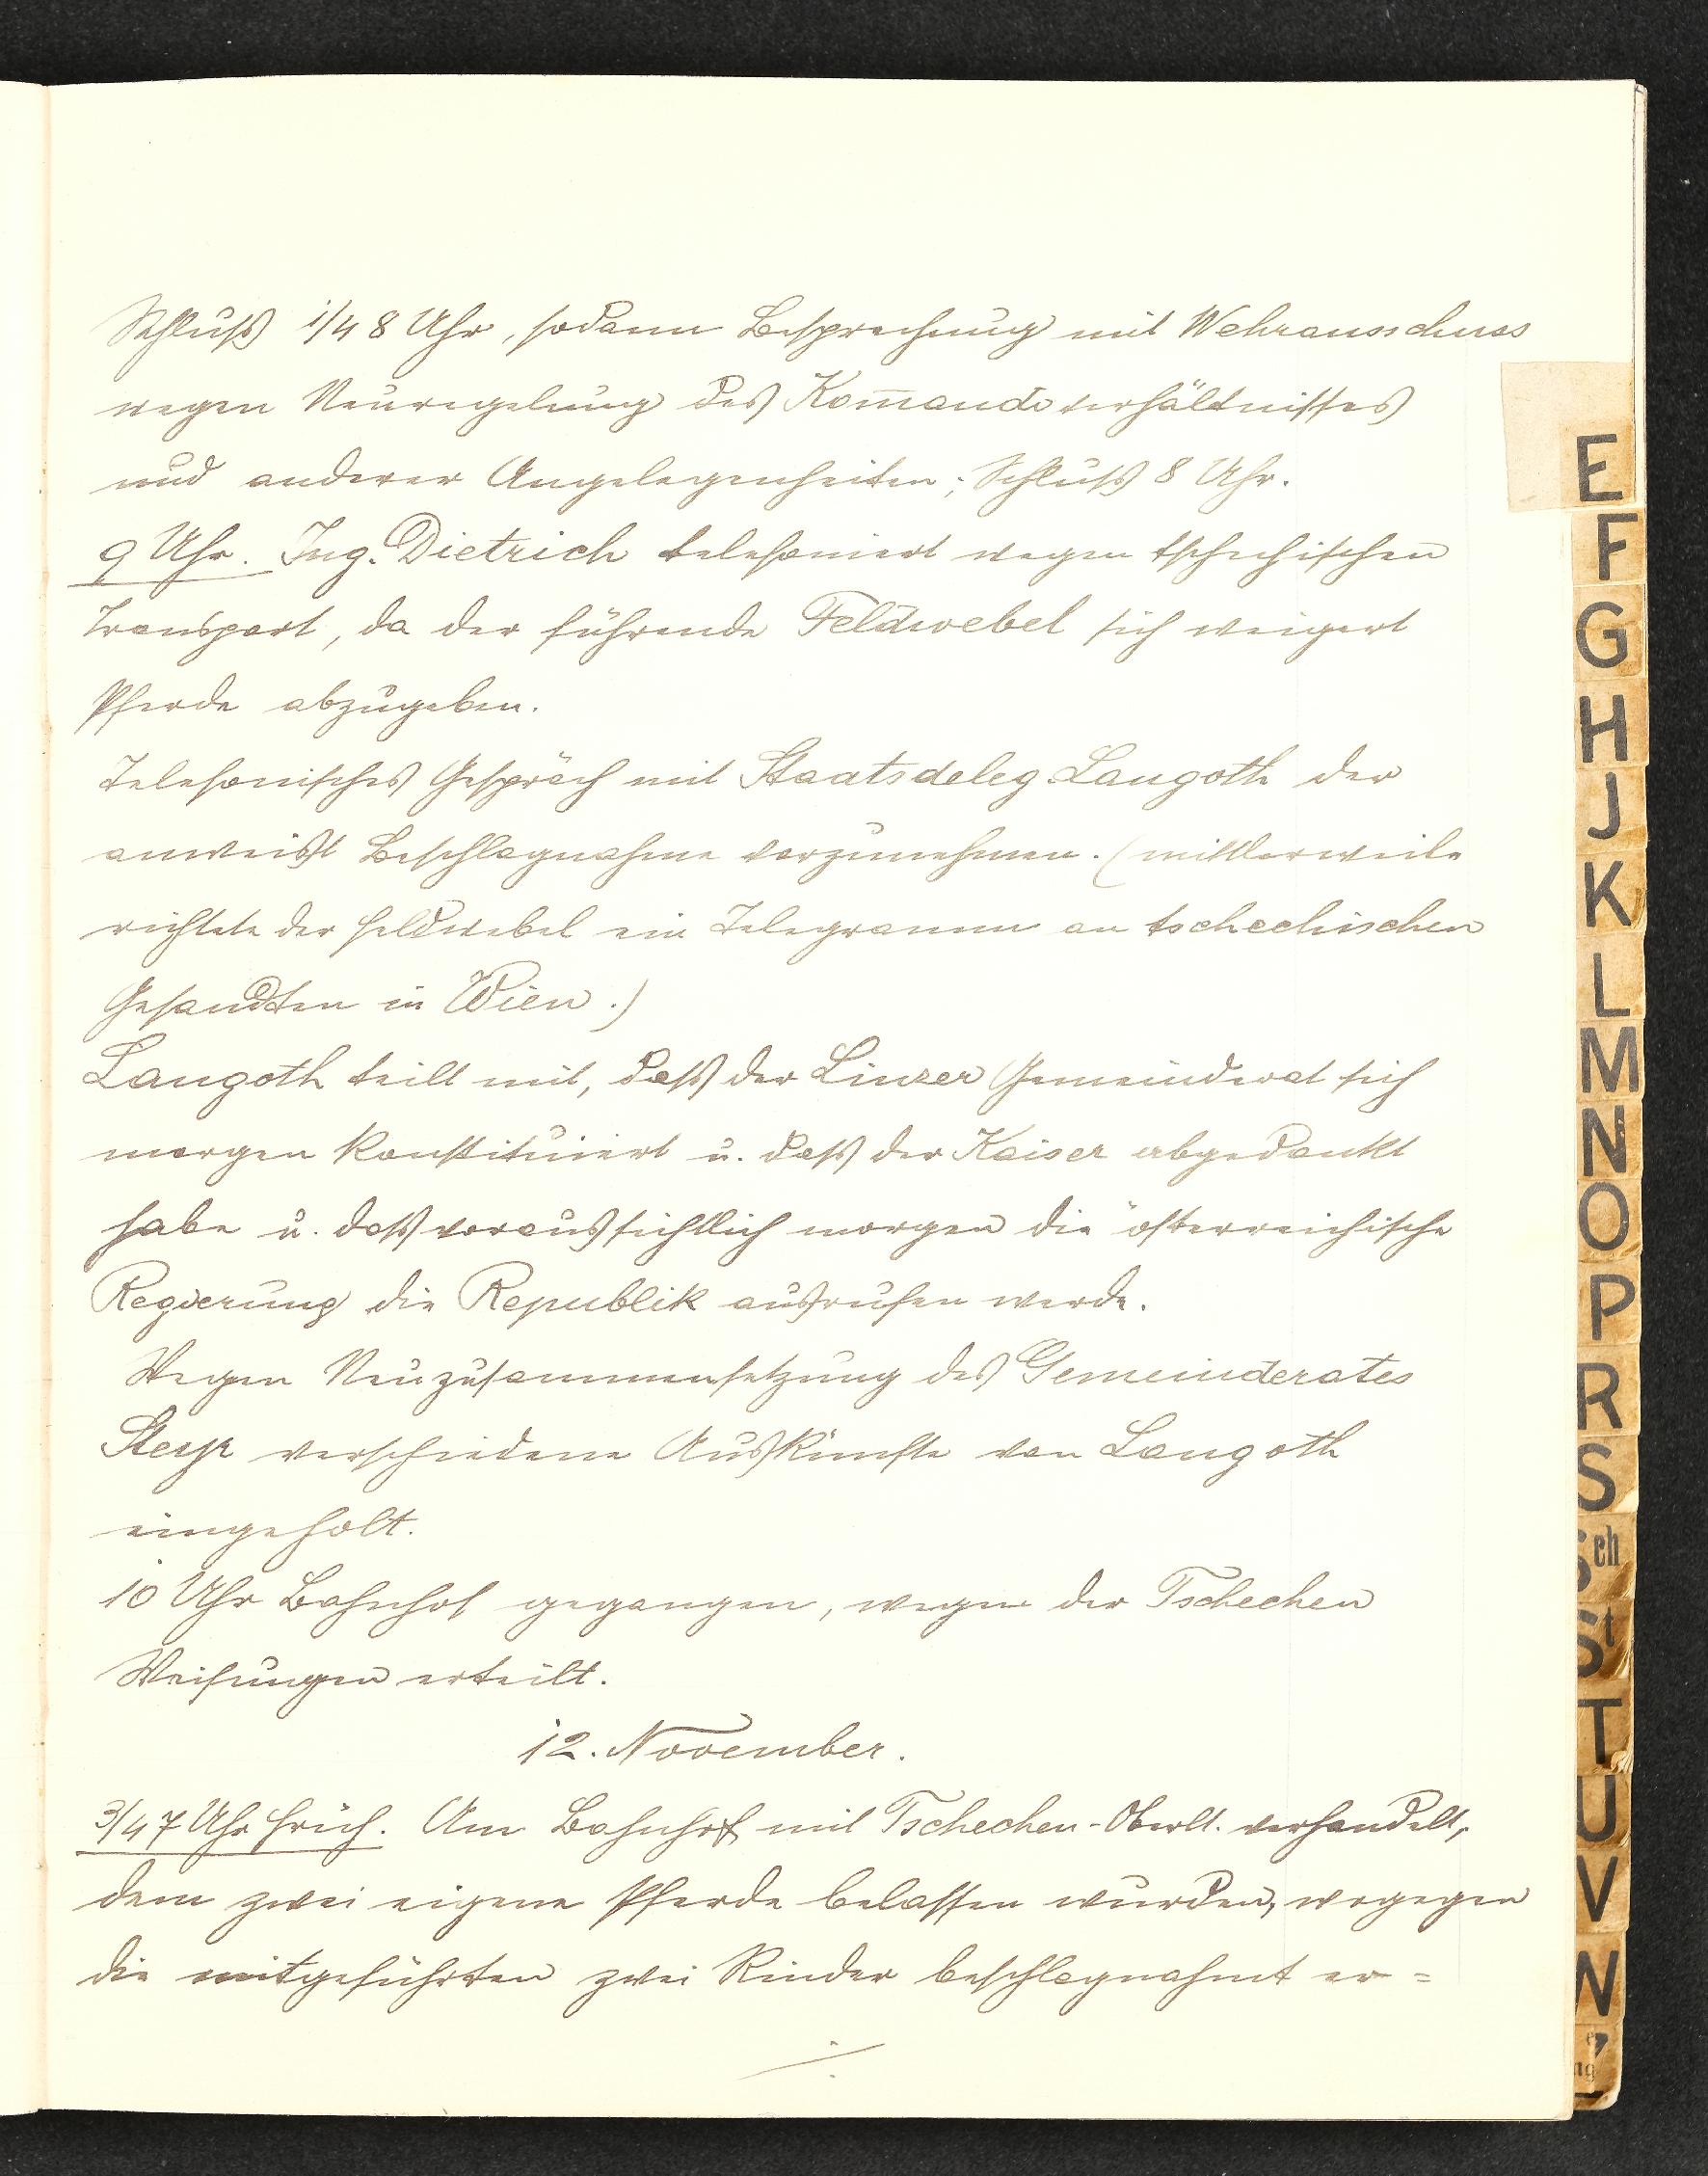 Schluß 1/4 8 Uhr, sodann Besprechung mit Wehrausschuss
wegen Neuregelung des Kom̄andoverhältnisses
und anderer Angelegenheiten; Schluß 8 Uhr.
9 Uhr. Ing. Dietrich telefoniert wegen tschechischen
Transport, da der führende Feldwebel sich weigert
Pferde abzugeben.
Telefonisches Gespräch mit Staatsdeleg Langoth der
anweist Beschlagnahme vorzunehmen. (mittlerweile
richtete der Feldwebel ein Telegramm an tschechischen
Gesandten in Wien.)
Langoth teilt mit, daß der Linzer Gemeinderat sich
morgen konstituiert u. daß der Kaiser abgedankt
habe u. daß voraussichtlich morgen die österreichische
Regierung die Republik ausrufen werde.
Wegen Neuzusammensetzung des Gemeinderates
Steyr verschiedene Auskünfte von Langoth
eingeholt.
10 Uhr Bahnhof gegangen, wegen der Tschechen
Weisungen erteilt.
12. November.
3/4 7 Uhr früh. Am Bahnhof mit Tschechen-Oberlt. verhandelt,
dem zwei eigene Pferde belassen wurden, wogegen
die mitgeführten zwei Rinder beschlagnahmt er=
./.
E
F
G
H
J
K
L
M
N
O
P
R
S
Sch
St
T
U
V
W